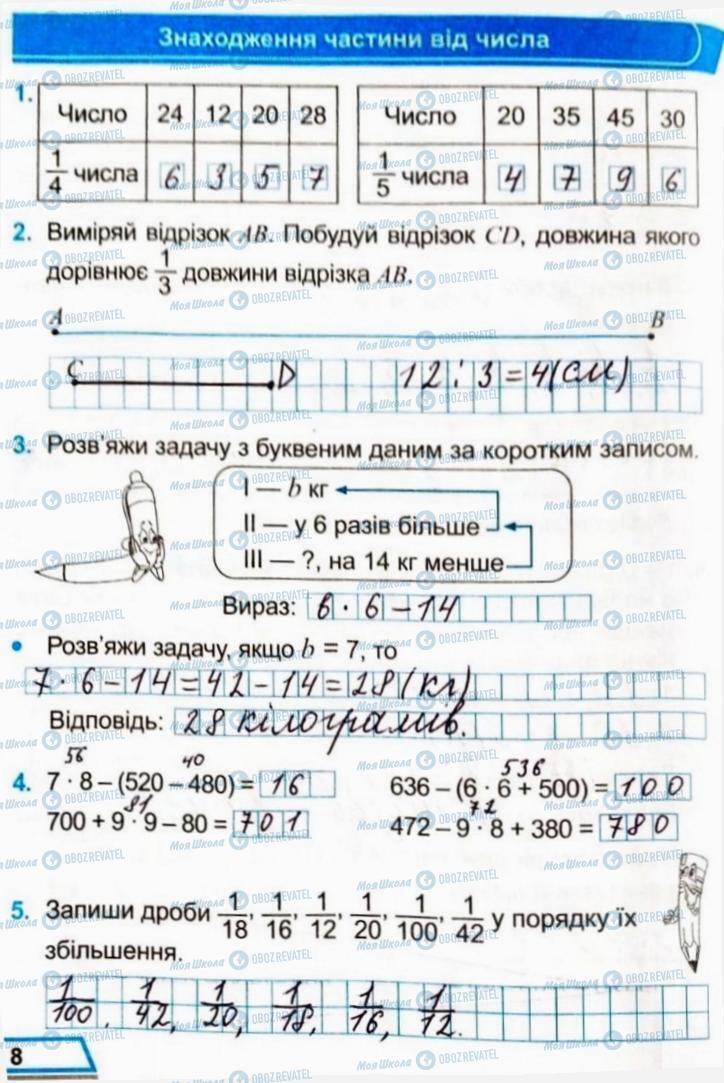 Знаходження частини від числа
1. Число 24 12 20 28
1/4 числа 6 3 5 7
Число 20 35 45 30
1/5 числа 4 7 9 6
2. Виміряй відрізок AB. Побудуй відрізок CD, довжина якого
дорівнює 1/3 довжини відрізка AB.
A B
C D 12 : 3 = 4(см)
3. Розв'яжи задачу з буквеним даним за коротким записом.
I — b кг
II — у 6 разів більше
III — ?, на 14 кг менше
Вираз: 6 · 6 – 14
• Розв'яжи задачу, якщо b = 7, то
7 · 6 – 14 = 42 – 14 = 28 (кг)
Відповідь: 28 кілограмів.
56 40
4. 7 · 8 – (520 – 480) = 16
536
636 – (6 · 6 + 500) = 100
81
700 + 9 · 9 – 80 = 701
72
472 – 9 · 8 + 380 = 780
5. Запиши дроби 1/18, 1/16, 1/12, 1/20, 1/100, 1/42 у порядку їх
збільшення.
1/100, 1/42, 1/20, 1/18, 1/16, 1/12.
8
Моя Школа OBOZREVATEL